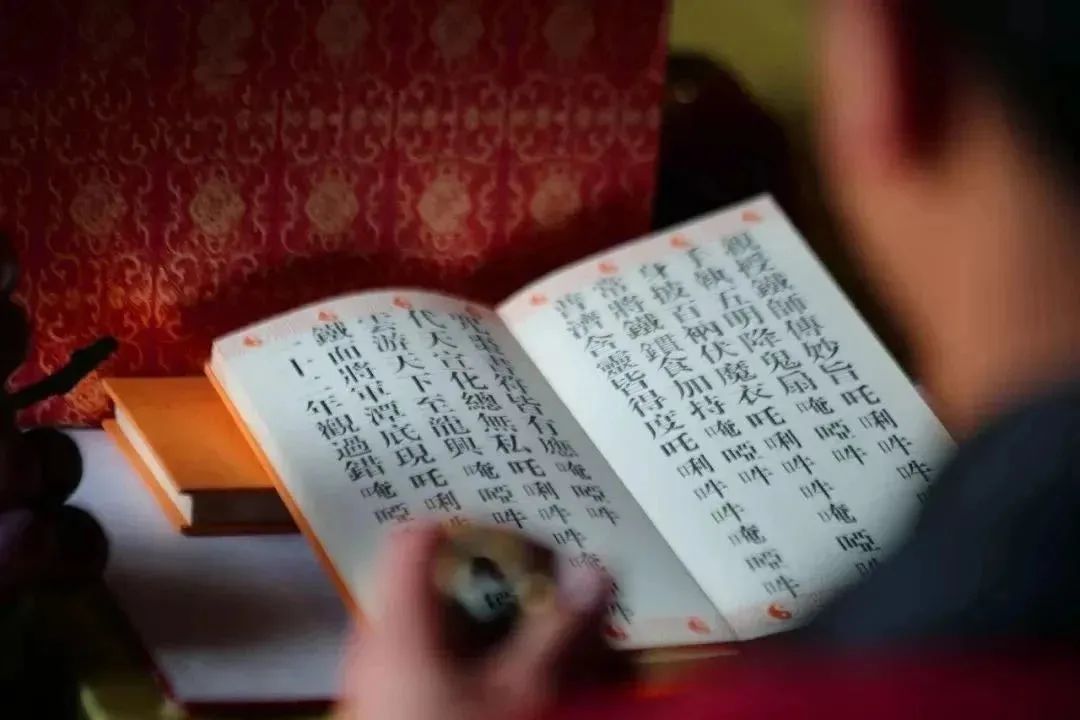 親授鐵師傳妙旨吒唎吽吽
手執五明降鬼扇唵啞吽
身披百衲伏魔衣吒唎吽吽唵啞吽
常將鐵鎖食加持唵啞吽
普濟含靈皆得度吒唎吽吽唵啞吽
咒書符皆有應唵啞吽
代天宣化總無私吒唎吽吽唵吽
游天下至龍興唵啞吽
鐵將軍潭底現吒唎
十二年觀過錯唵啞